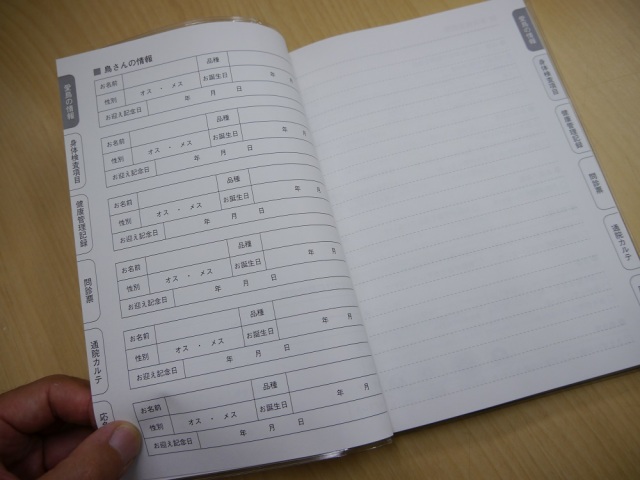 ■ 鳥さんの情報
お名前 品種
性別 オス ・ メス お誕生日 年 月
お迎え記念日 年 月 日
お名前 品種
性別 オス ・ メス お誕生日 年 月
お迎え記念日 年 月 日
お名前 品種
性別 オス ・ メス お誕生日 年 月
お迎え記念日 年 月 日
お名前 品種
性別 オス ・ メス お誕生日 年 月
お迎え記念日 年 月 日
お名前 品種
性別 オス ・ メス お誕生日 年 月
お迎え記念日 年 月 日
お名前 品種
性別 オス ・ メス お誕生日 年 月
お迎え記念日 年 月 日
愛鳥の情報
身体検査項目
健康管理記録
問診票
通院カルテ
愛鳥の情報
身体検査項目
健康管理記録
問診票
通院カルテ